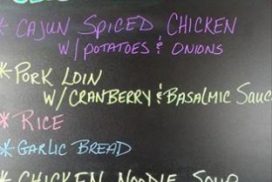 * CAJUN SPICED CHICKEN
W/ POTATOES & ONIONS
* PORK LOIN
W/ CRANBERRY & BASALMIC SAUC
* RICE
* GARLIC BREAD
* CHICKEN NOODLE SOUP